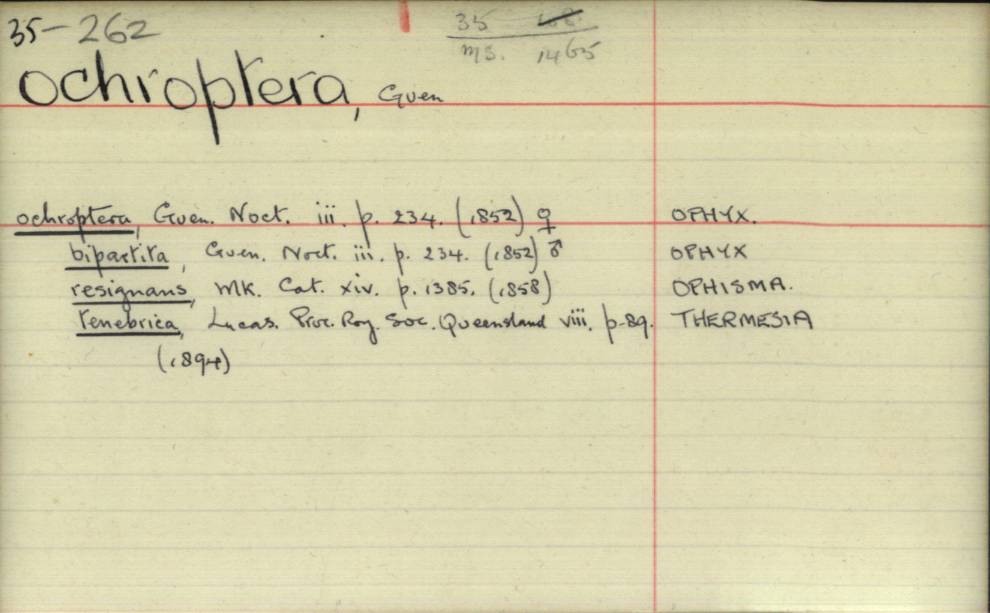 35-262
35
ms. 1465
ochroptera, Guen
ochroptera, Guen. Noct. iii. p. 234. (1852) ♀ OPHYX.
bipartita, Guen. Noct. iii. p. 234. (1852) ♂ OPHYX
resignans, Mk. Cat. xiv. p. 1385. (1858) OPHISMA.
tenebrica, Lucas. Proc. Roy. Soc. Queensland viii. p. 89. THERMESIA
(1894)